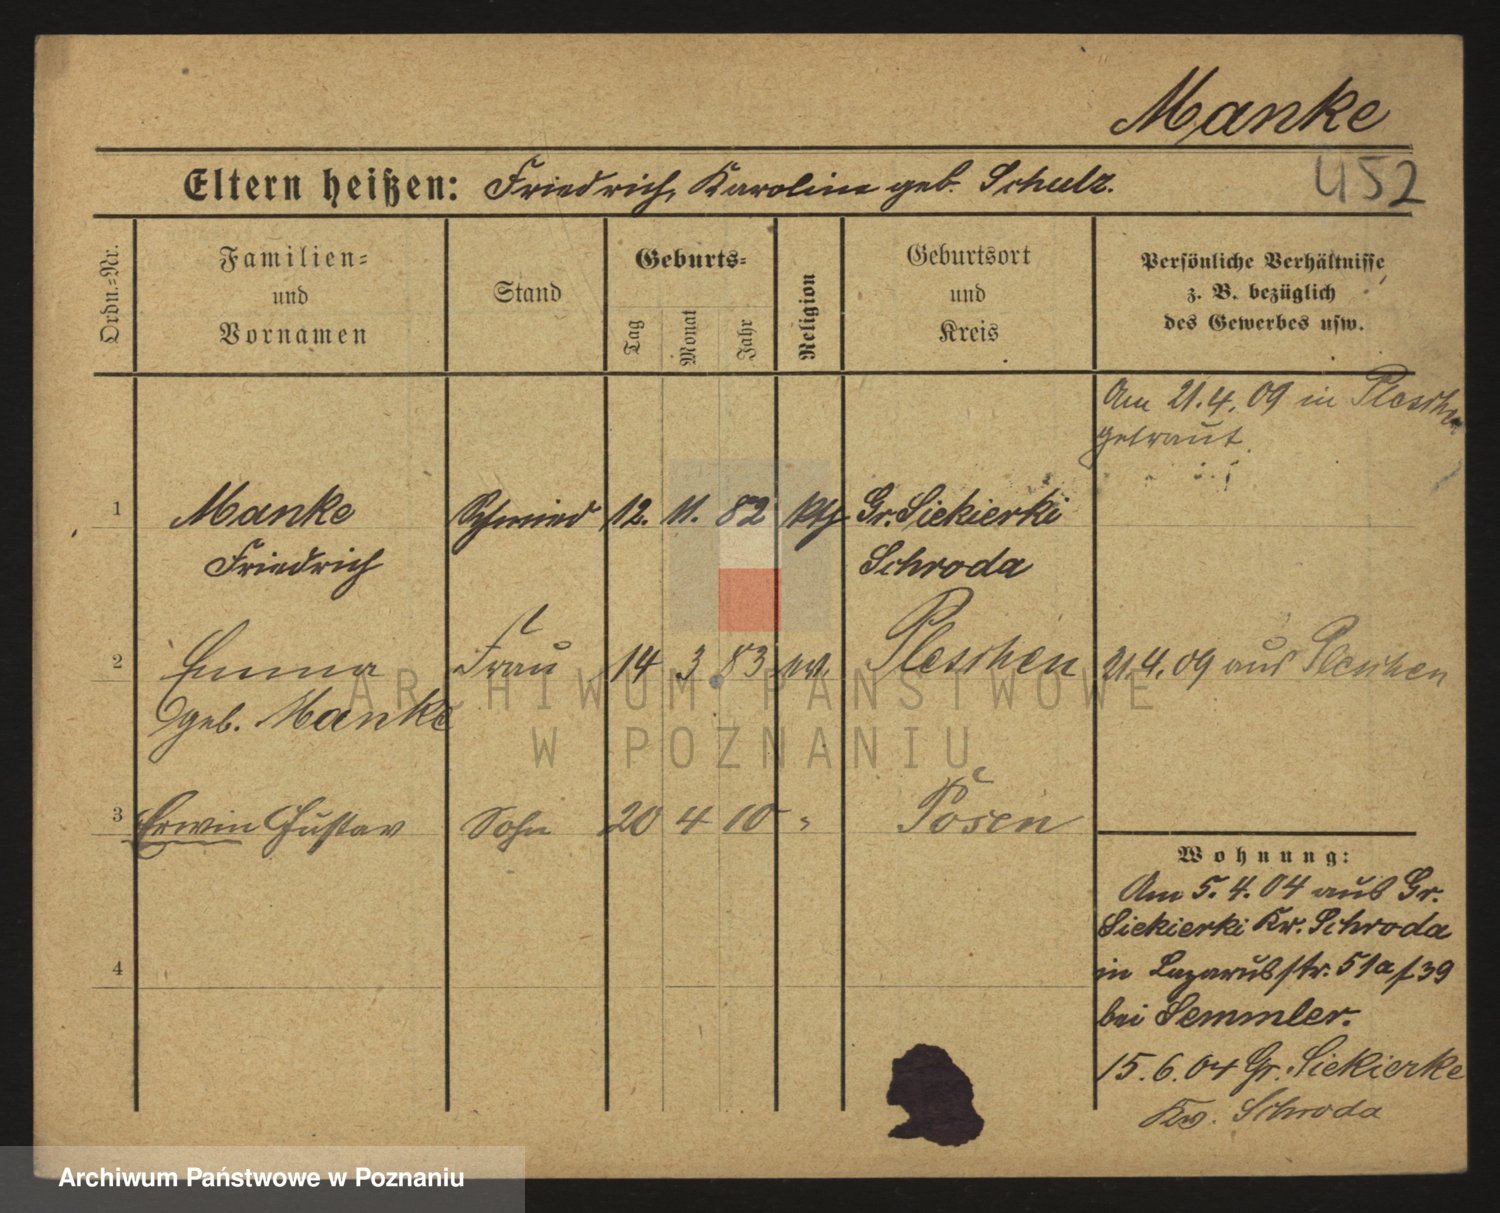 Manke
Eltern heißen: Friedrich, Karoline geb. Schulz.
452
Ordn.-Nr.
Familien- und Vornamen
Stand
Geburts-
Tag
Monat
Jahr
Religion
Geburtsort und Kreis
Persönliche Verhältnisse
z. B. bezüglich
des Gewerbes usw.
Am 21.4.09 in Pleschen
getraut.
1 Manke Schmied 12. 11. 82 Gr. Siekierki
Friedrich Schroda
2 Emma Frau 14 3 83 ev. Pleschen 21.4.09 aus Pleschen
geb. Manke
3 Erwin Gustav Sohn 20 4 10 " Posen
Wohnung:
Am 5.4.04 aus Gr.
Siekierki Kr. Schroda
4
in Lazarusstr. 51a f 39
bei Semmler.
15.6.04 Gr. Siekierke
Kr. Schroda
ARCHIWUM PAŃSTWOWE
W POZNANIU
Archiwum Państwowe w Poznaniu